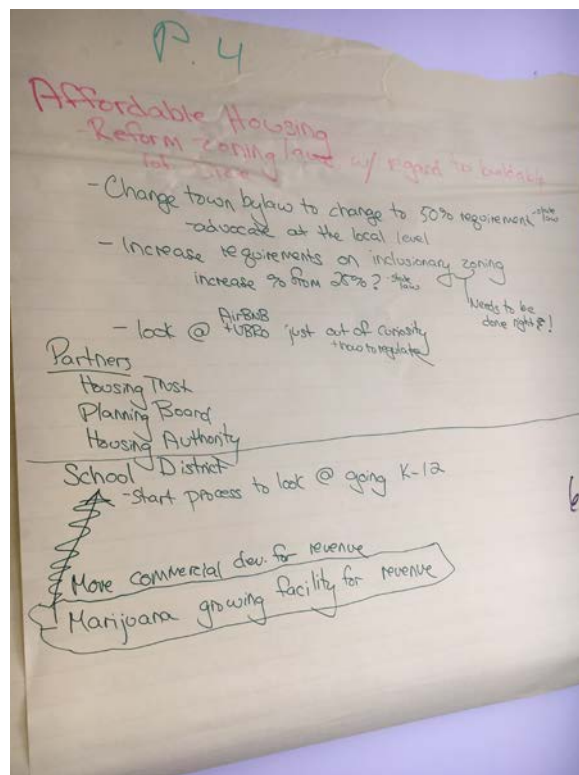 P. 4
Affordable Housing
- Reform zoning laws w/ regard to buildable
lot size
- Change town bylaw to change to 50% requirement - state law
- advocate at the local level
- Increase requirements on inclusionary zoning
increase % from 25%? - state law
Needs to be
done right!
- look @ AirBNB + VBRO just out of curiosity
+ how to regulate
Partners
Housing Trust
Planning Board
Housing Authority
School District
- Start process to look @ going K-12
More commercial dev. for revenue
- Marijuana growing facility for revenue